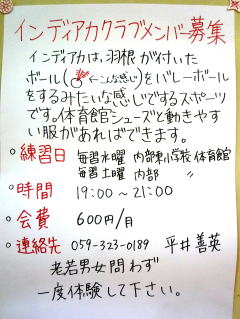 インディアカクラブメンバー募集
インディアカは、羽根が付いた
ボール(←こんな感じ)をバレーボール
をするみたいな感じでするスポーツ
です。体育館シューズと動きやす
い服があればできます。
・練習日 毎習水曜 内部東小学校体育館
毎習土曜 内部 〃
・時間 19:00~21:00
・会費 600円/月
・連絡先 059-323-0189 平井善英
老若男女問わず
一度体験して下さい。